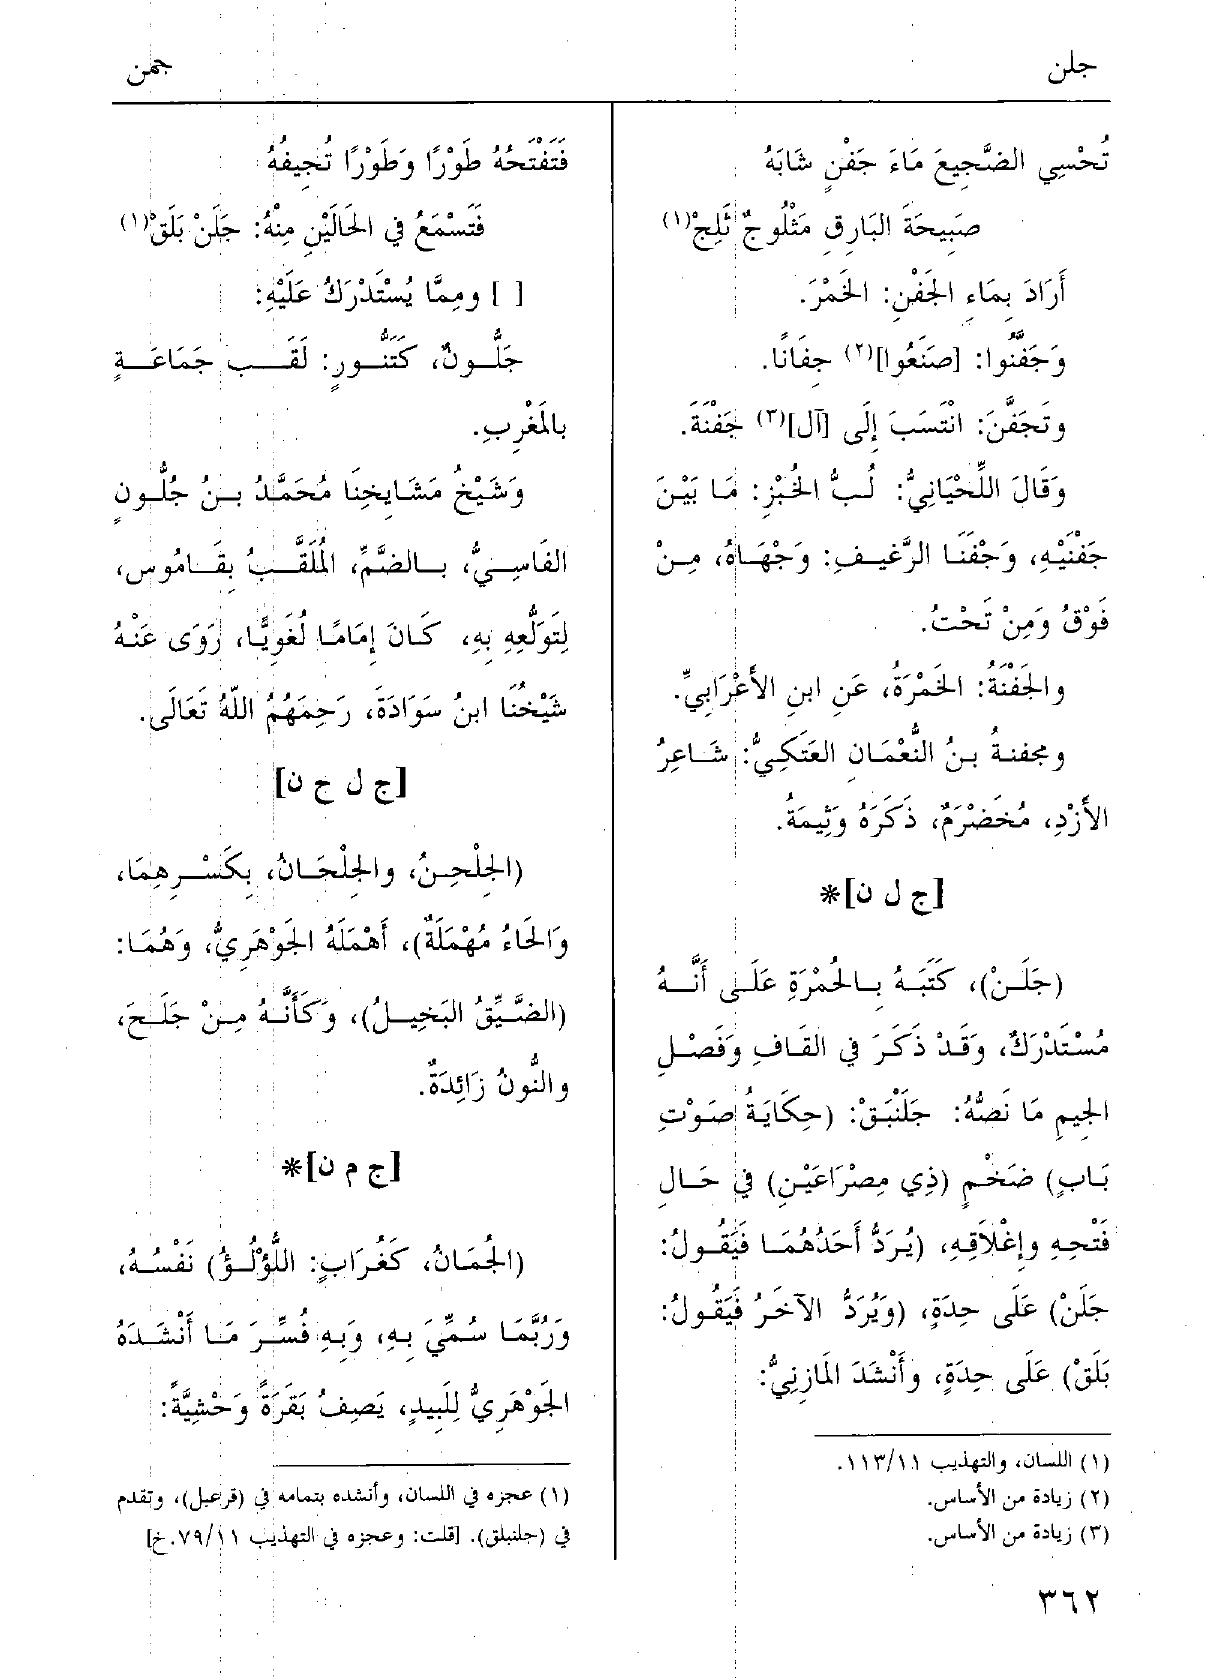 جلن
جمن
تُحْسِي الضَّجِيعَ مَاءَ جَفْنٍ شَابَهُ
صَبِيحَةَ البَارِقِ مَثْلُوجٌ ثَلِجْ(١)
أَرَادَ بِمَاءِ الجَفْنِ: الخَمْرَ.
وَجَفَّنُوا: [صَنَعُوا](٢) جِفَانًا.
وتَجَفَّنَ: انْتَسَبَ إِلَى [آل](٣) جَفْنَةَ.
وَقَالَ اللِّحْيَانِيُّ: لُبُّ الخُبْزِ: مَا بَيْنَ
جَفْنَيْهِ، وَجَفْنَا الرَّغِيفِ: وَجْهَاهُ، مِنْ
فَوْقُ وَمِنْ تَحْتُ.
والجَفْنَةُ: الخَمْرَةُ، عَنِ ابنِ الأَعْرَابِيِّ.
ومجفنةُ بنُ النُّعْمَانِ العَتَكِيُّ: شَاعِرُ
الأَزْدِ، مُخَضْرَمٌ، ذَكَرَهُ وَثِيمَةُ.
[ج ل ن]*
(جَلَنْ)، كَتَبَهُ بِالحُمْرَةِ عَلَى أَنَّهُ
مُسْتَدْرَكٌ، وَقَدْ ذَكَرَ في القَافِ وَفَصْلِ
الجِيمِ مَا نَصُّهُ: جَلَنْبَقْ: (حِكَايَةُ صَوْتِ
بَابٍ) ضَخْمٍ (ذِي مِصْرَاعَيْنِ) في حَالِ
فَتْحِهِ وإِغْلَاقِهِ، (يُرَدُّ أَحَدُهُمَا فَيَقُولُ:
جَلَنْ) عَلَى حِدَةٍ، (وَيُرَدُّ الآخَرُ فَيَقُولُ:
بَلَقْ) عَلَى حِدَةٍ، وأَنْشَدَ المَازِنِيُّ:
(١) اللسان، والتهذيب ١١٣/١١.
(٢) زيادة من الأساس.
(٣) زيادة من الأساس.
فَتَفْتَحُهُ طَوْرًا وَطَوْرًا تُجِيفُهُ
فَتَسْمَعُ في الحَالَيْنِ مِنْهُ: جَلَنْ بَلَقْ(١)
[ ] ومِمَّا يُسْتَدْرَكُ عَلَيْهِ:
جَلُّونٌ، كَتَنُّورٍ: لَقَب جَمَاعَةٍ
بالمَغْرِبِ.
وَشَيْخُ مَشَايِخِنَا مُحَمَّدُ بنُ جُلُّونٍ
الفَاسِيُّ، بالضَّمِّ، المُلَقَّبُ بِقَامُوس،
لِتَوَلُّعِهِ بِهِ، كَانَ إِمَامًا لُغَوِيًّا، رَوَى عَنْهُ
شَيْخُنَا ابنُ سَوَادَةَ، رَحِمَهُمُ اللَّهُ تَعَالَى.
[ج ل ح ن]
(الجِلْحِنُ، والجِلْحَانُ، بِكَسْرِهِمَا،
وَالحَاءُ مُهْمَلَةٌ)، أَهْمَلَهُ الجَوْهَرِيُّ، وَهُمَا:
(الضَّيِّقُ البَخِيلُ)، وَكَأَنَّهُ مِنْ جَلَحَ،
والنُّونُ زَائِدَةٌ.
[ج م ن]*
(الجُمَانُ، كَغُرَابٍ: اللُّؤْلُؤُ) نَفْسُهُ،
وَرُبَّمَا سُمِّيَ بِهِ، وَبِهِ فُسِّرَ مَا أَنْشَدَهُ
الجَوْهَرِيُّ لِلَبِيدٍ، يَصِفُ بَقَرَةً وَحْشِيَّةً:
(١) عجزه في اللسان، وأنشده بتمامه في (قرعبل)، وتقدم
في (جلنبلق). [قلت: وعجزه في التهذيب ٧٩/١١.خ]
٣٦٢